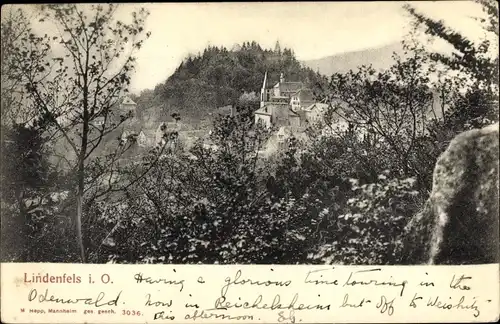 Lindenfels i. O. Having a glorious time touring in the
Odenwald now in Reichelsheim but off to
M Happ, Mannheim ges. gesch. 3036. this afternoon.